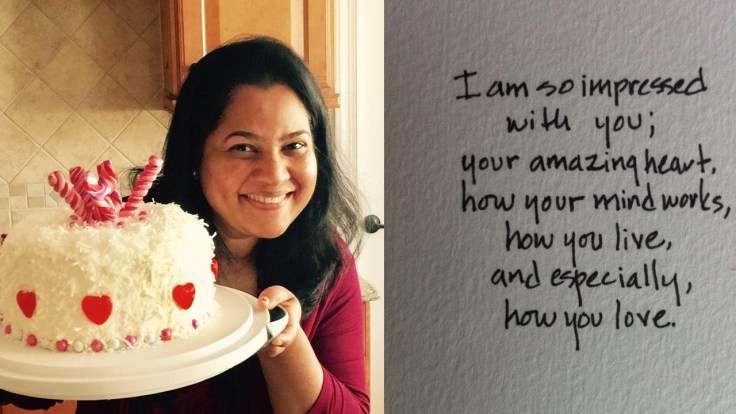 I am so impressed
with you;
your amazing heart,
how your mind works,
how you live,
and especially,
how you love.